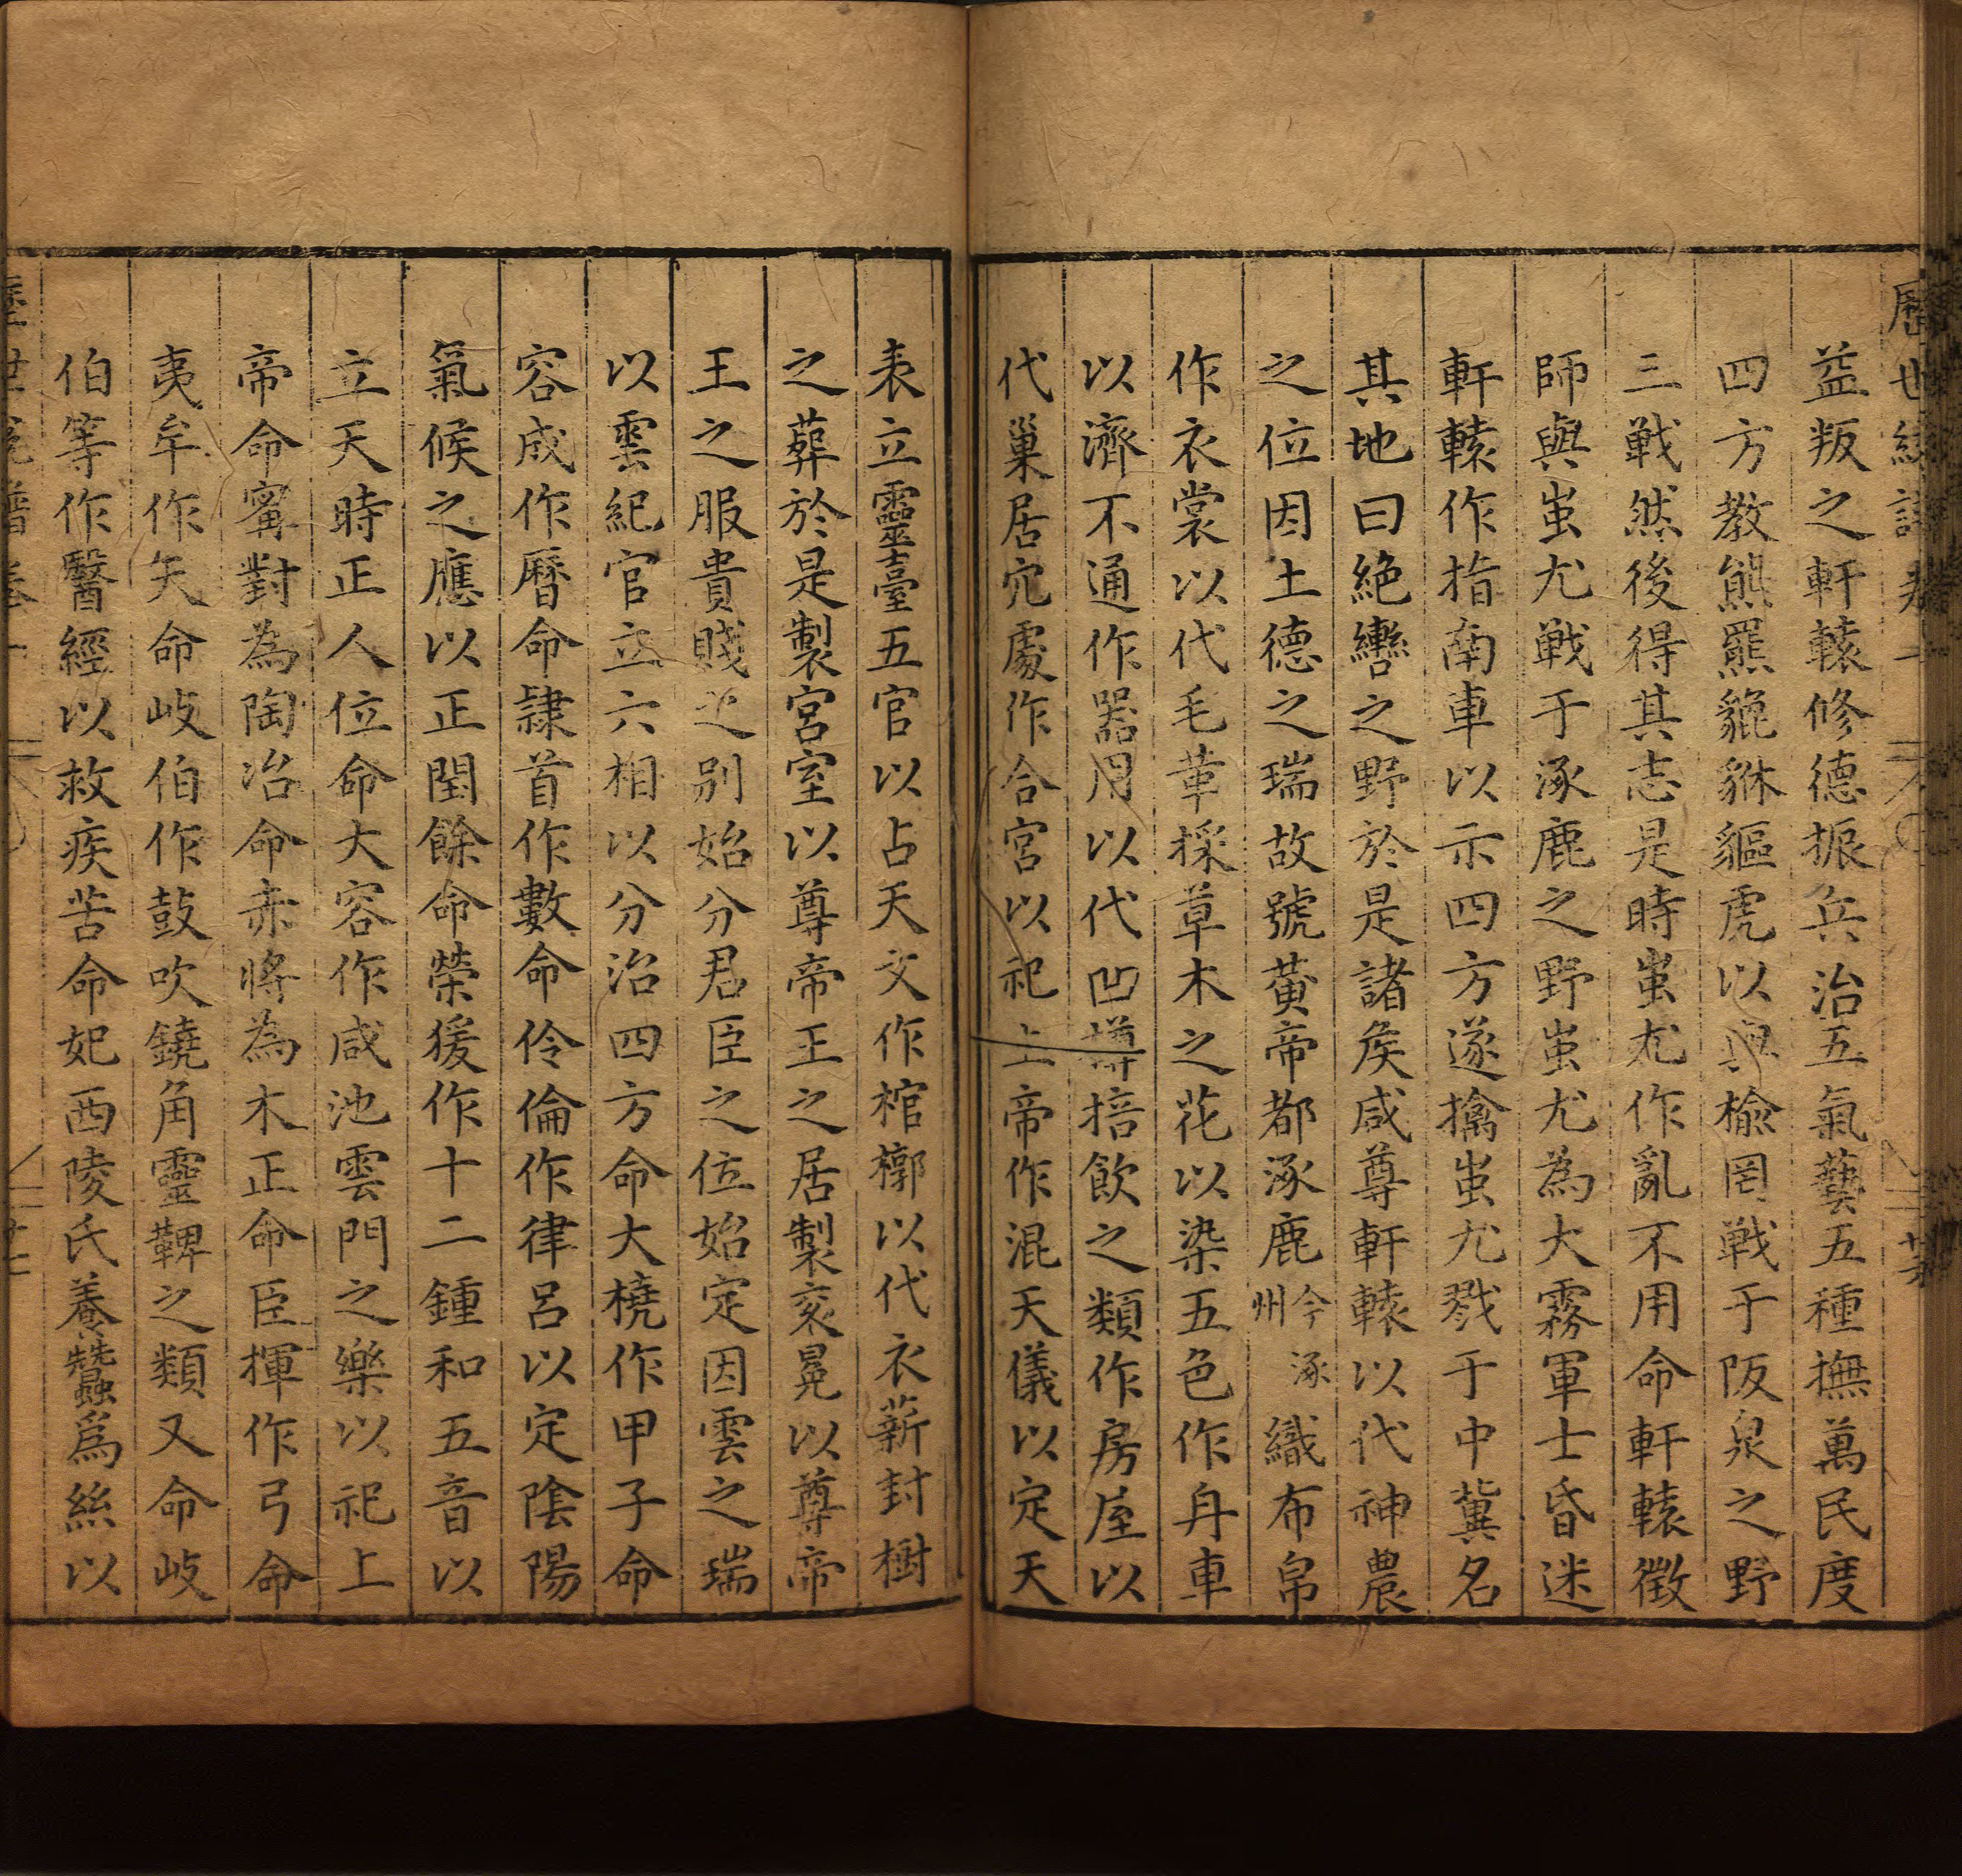 益叛之軒轅修德振兵治五氣藝五種撫萬民度
四方教熊羆貔貅貙虎以與榆罔戦于阪泉之野
三戦然後得其志是時蚩尤作亂不用命軒轅徵
師與蚩尤戦于涿鹿之野蚩尤為大霧軍士昏迷
軒轅作指南車以示四方遂擒蚩尤戮于中冀名
其地曰絶轡之野於是諸侯咸尊軒轅以代神農
之位因土德之瑞故號黄帝都涿鹿今涿州織布帛
作衣裳以代毛革採草木之花以染五色作舟車
以濟不通作器用以代凹樽掊飲之類作房屋以
代巢居宂處作合宮以祀上帝作混天儀以定天
表立靈臺五官以占天文作棺槨以代衣薪封樹
之葬於是製宮室以尊帝王之居製衮冕以尊帝
王之服貴賤之别始分君臣之位始定因雲之瑞
以雲紀官立六相以分治四方命大橈作甲子命
容成作曆命隷首作數命伶倫作律呂以定陰陽
氣候之應以正閏餘命榮猨作十二鍾和五音以
立天時正人位命大容作咸池雲門之樂以祀上
帝命甯對為陶冶命赤將為木正命臣揮作弓命
夷牟作矢命岐伯作鼓吹鐃角靈鞞之類又命岐
伯等作醫經以救疾苦命妃西陵氏養蠶為絲以